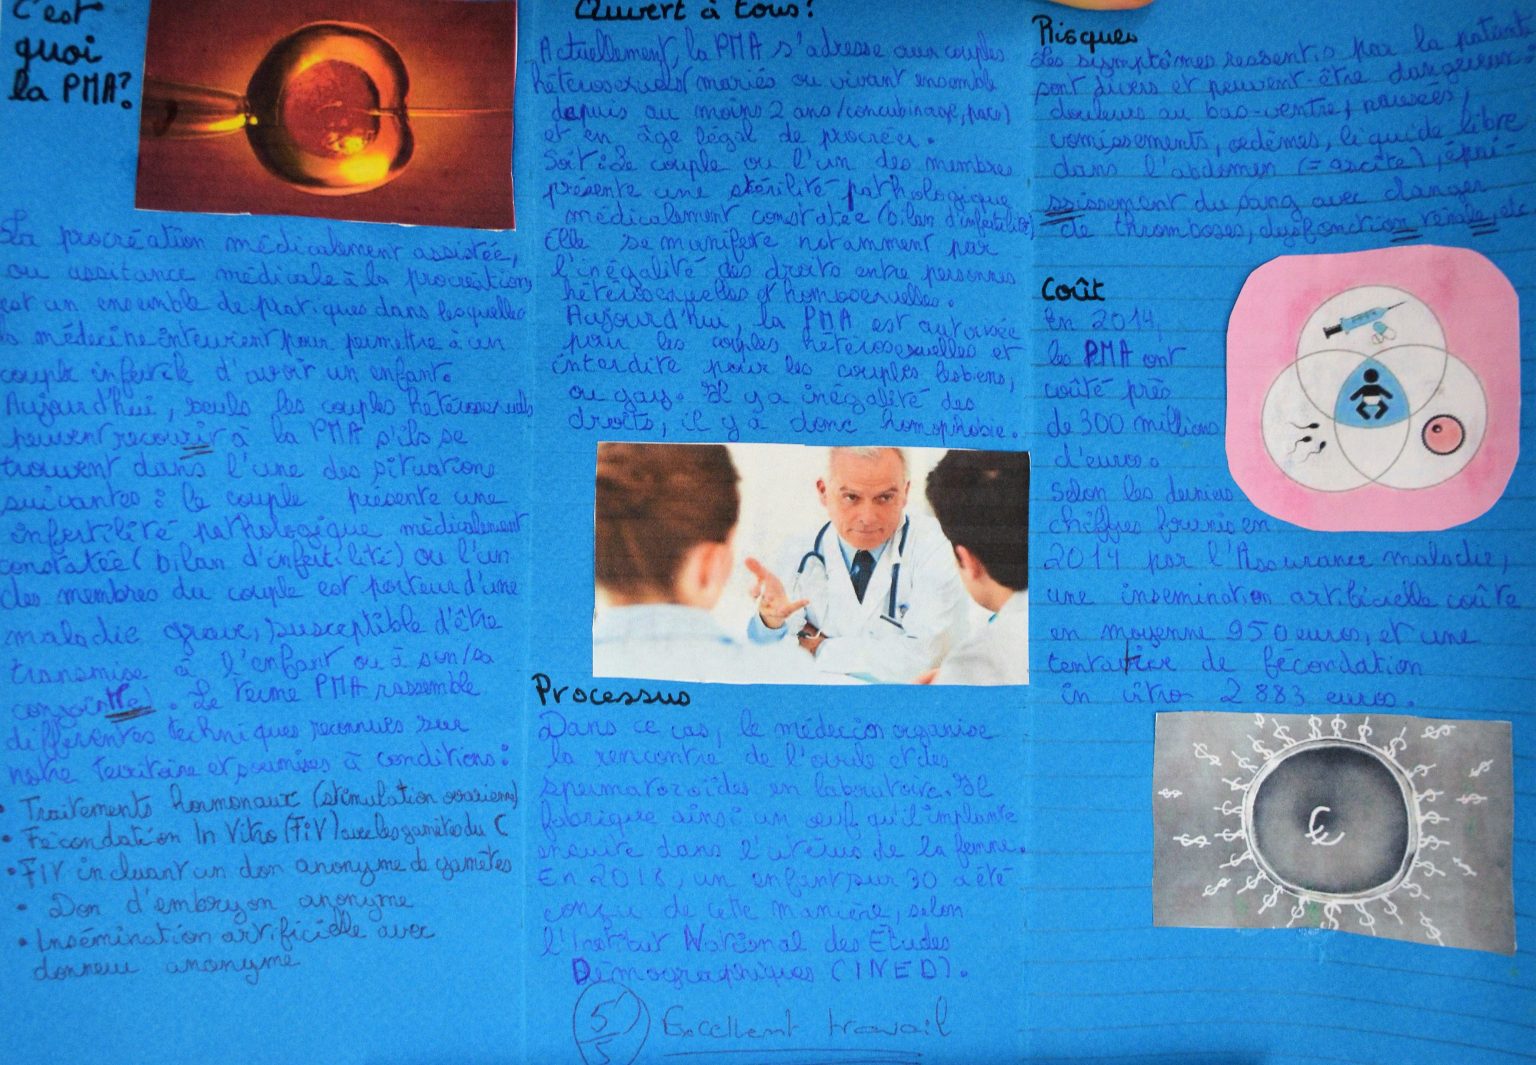 C'est
quoi
la PMA?
La procréation médicalement assistée,
ou assitance médicale à la procréation
est un ensemble de pratiques dans lesquelles
la médecine intervient pour permettre à un
couple infertile d'avoir un enfant.
Aujourd'hui, seuls les couples hétérosexuels
peuvent recourir à la PMA s'ils se
trouvent dans l'une des situations
suivantes : le couple présente une
infertilité pathologique médicalement
constatée (bilan d'infertilité) ou l'un
des membres du couple est porteur d'une
maladie grave, susceptible d'être
transmise à l'enfant ou à son/sa
conjointe. Le terme PMA rassemble
différentes techniques reconnues sur
notre territoire et soumises à conditions :
• Traitements hormonaux (stimulation ovarienne)
• Fécondation In Vitro (FIV) avec les gamètes du C
• FIV incluant un don anonyme de gamètes
• Don d'embryon anonyme
• Insémination artificielle avec
donneur anonyme
Ouvert à tous?
Actuellement, la PMA s'adresse aux couples
hétérosexuels mariés ou vivant ensemble
depuis au moins 2 ans (concubinage, pacs)
et en âge légal de procréer.
Soit : le couple ou l'un des membres
présente une stérilité pathologique
médicalement constatée (bilan d'infertilité)
Elle se manifeste notamment par
l'inégalité des droits entre personnes
hétérosexuelles et homosexuelles.
Aujourd'hui, la PMA est autorisée
pour les couples hétérosexuelles et
interdite pour les couples lesbiens,
ou gays. Il y a inégalité des
droits, il y a donc homophobie.
Processus
Dans ce cas, le médecin organise
la rencontre de l'ovule et des
spermatozoïdes en laboratoire. Il
fabrique ainsi un œuf qu'il implante
ensuite dans l'utérus de la femme.
En 2018, un enfant sur 30 a été
conçu de cette manière, selon
l'Institut National des Études
Démographiques (INED).
5/5 Excellent travail
Risques
Les symptômes ressentis par la patiente
sont divers et peuvent-être dangereux :
douleurs au bas-ventre, nausées,
vomissements, œdèmes, liquide libre
dans l'abdomen (= ascite), épai-
ssissement du sang avec danger
de thromboses, dysfonction rénale, etc
Coût
En 2014,
les PMA ont
coûté près
de 300 millions
d'euros.
Selon les derniers
chiffres fournis en
2014 par l'Assurance maladie,
une insemination artificielle coûte
en moyenne 950 euros, et une
tentative de fécondation
in vitro 2 883 euros.